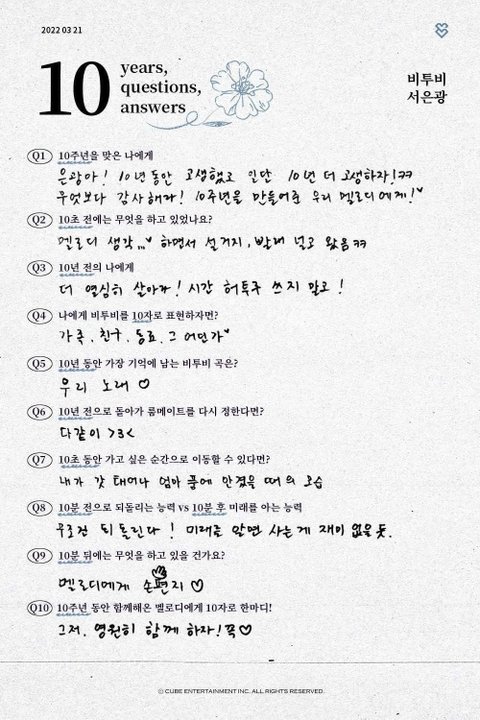 2022 03 21
10 years,
questions,
answers
비투비
서은광
Q1 10주년을 맞은 나에게
은광아! 10년 동안 고생했고 일단 10년 더 고생하자!ㅋㅋ
무엇보다 감사해라! 10주년을 만들어준 우리 멜로디에게!♥
Q2 10초 전에는 무엇을 하고 있었나요?
멜로디 생각...♥ 하면서 설거지, 빨래 널고 왔음ㅋㅋ
Q3 10년 전의 나에게
더 열심히 살아라! 시간 허투루 쓰지 말고!
Q4 나에게 비투비를 10자로 표현하자면?
가족, 친구, 동료, 그 어딘가♥
Q5 10년 동안 가장 기억에 남는 비투비 곡은?
우리 노래 ♡
Q6 10년 전으로 돌아가 룸메이트를 다시 정한다면?
다같이 >3<
Q7 10초 동안 가고 싶은 순간으로 이동할 수 있다면?
내가 갓 태어나 엄마 품에 안겼을 때의 모습
Q8 10분 전으로 되돌리는 능력 vs 10분 후 미래를 아는 능력
무조건 되돌린다! 미래를 알면 사는게 재미 없을 듯.
Q9 10분 뒤에는 무엇을 하고 있을 건가요?
멜로디에게 손편지 ♡
Q10 10주년 동안 함께해온 멜로디에게 10자로 한마디!
그저, 영원히 함께 하자!쪽♡
© CUBE ENTERTAINMENT INC. ALL RIGHTS RESERVED.